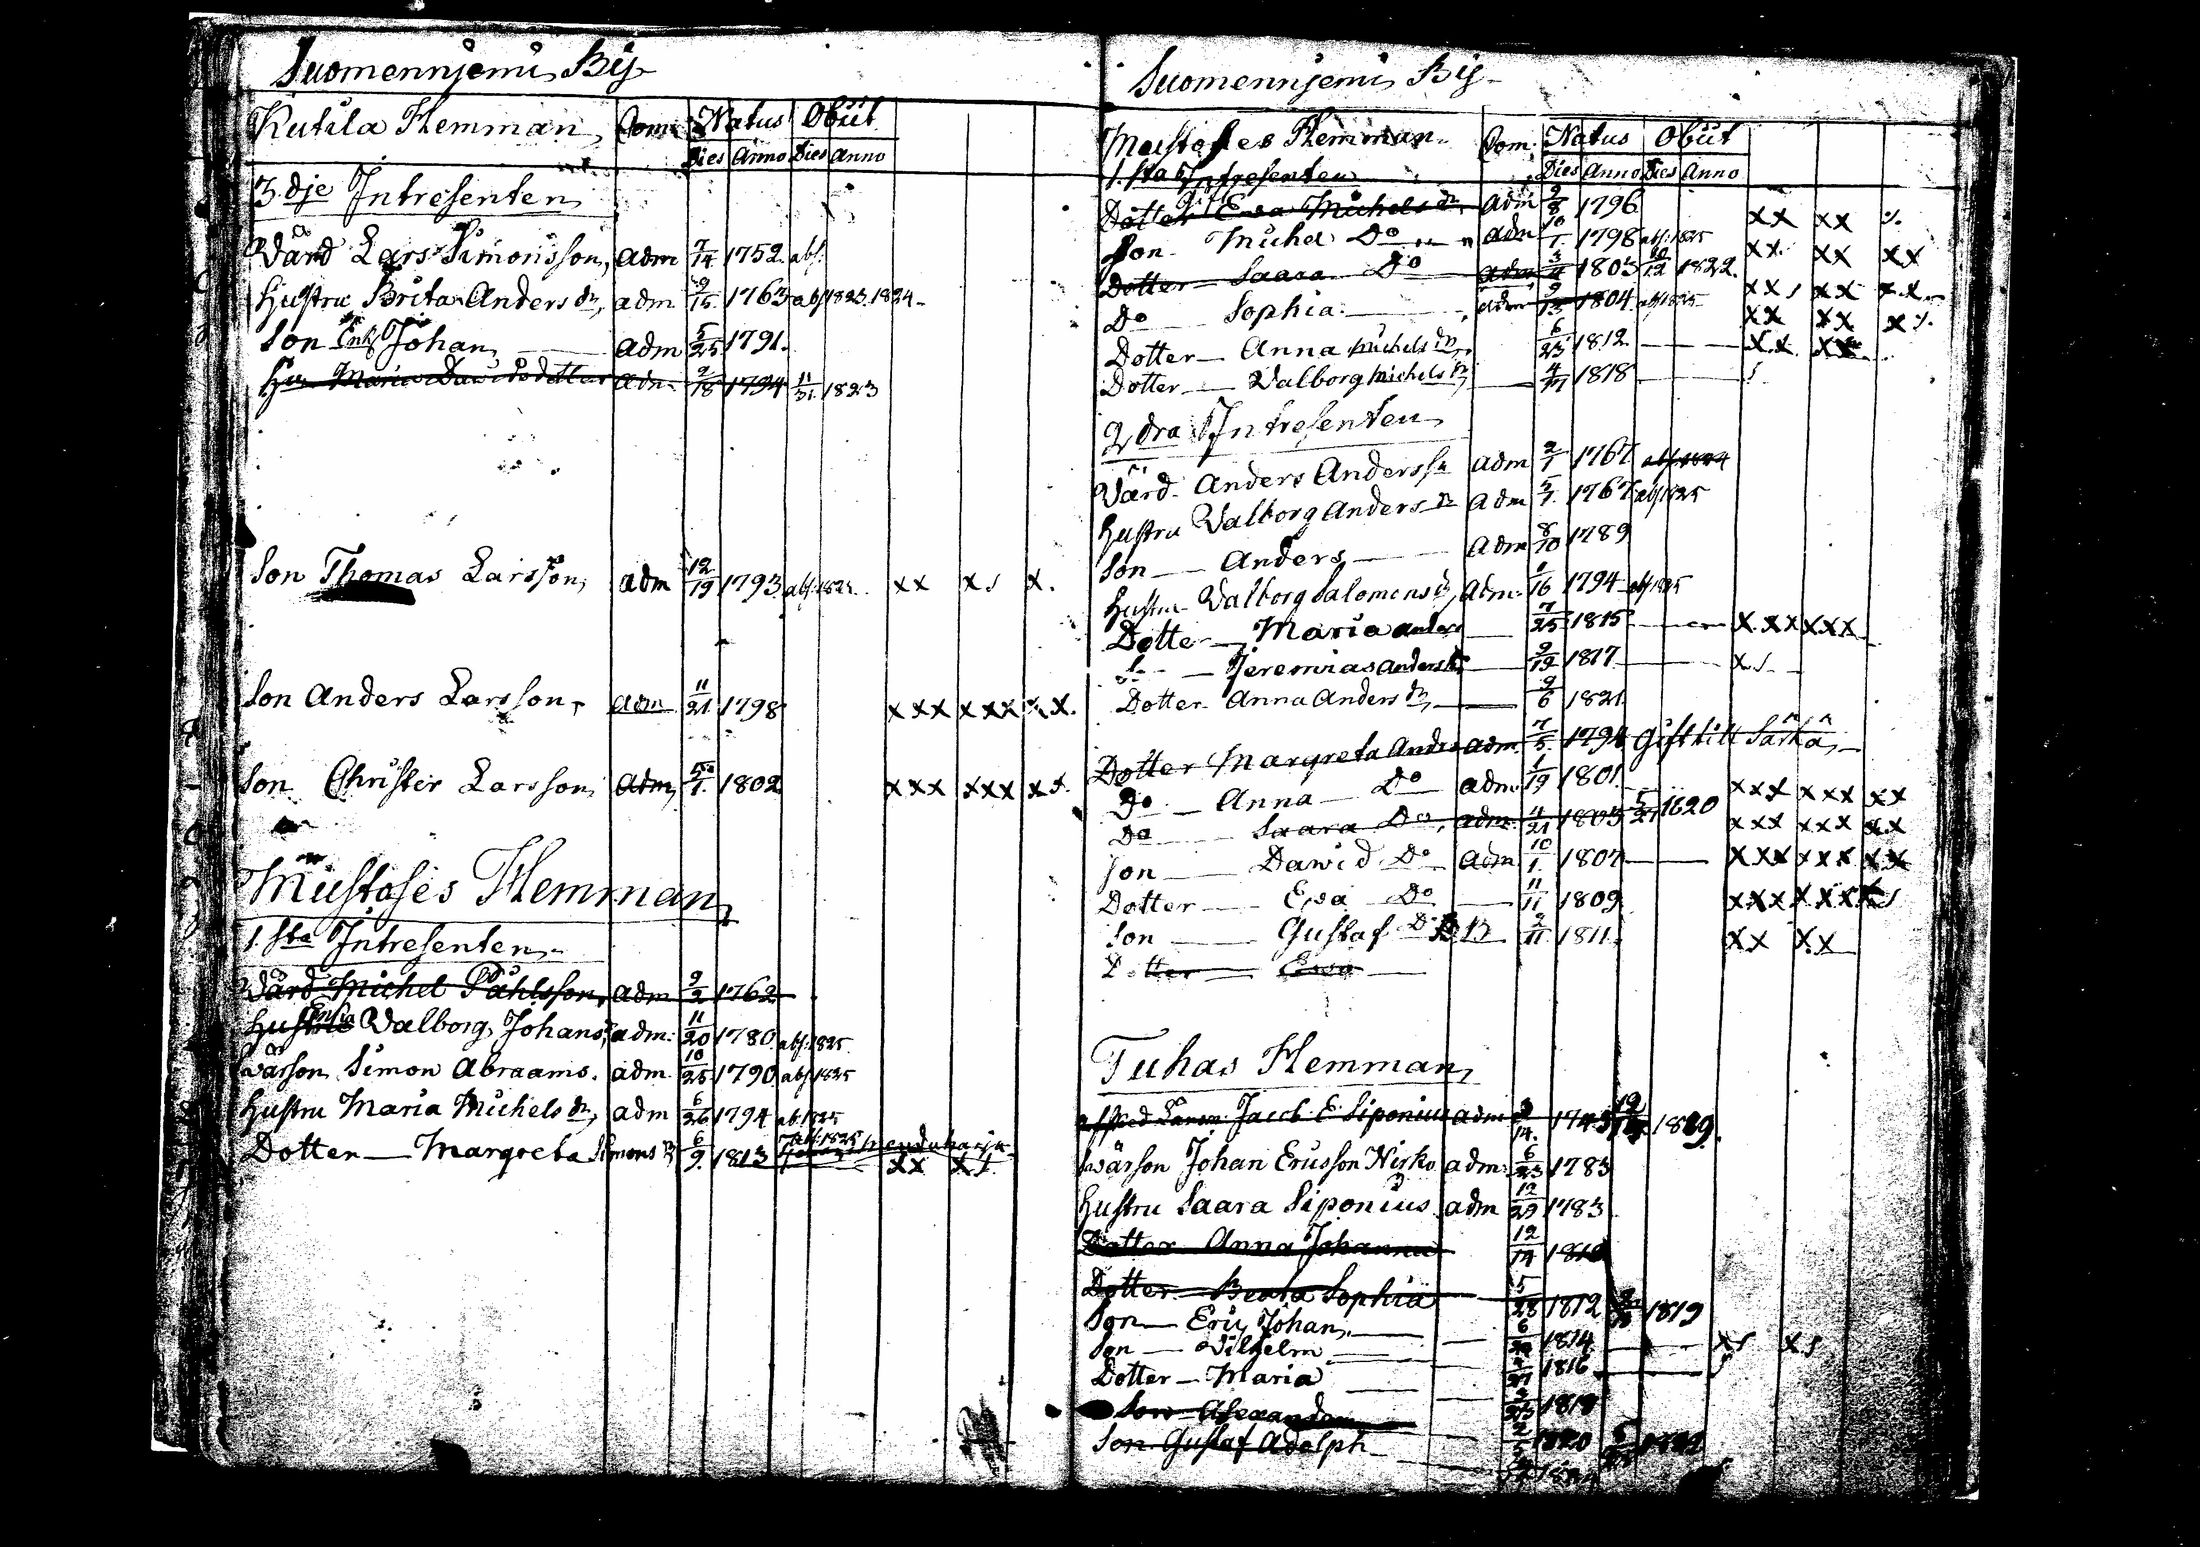 Suomennjemi By
Kutila Hemman, Com: Natus Obiit
Dies Anno Dies Anno
3. dje Intresenten
Wärd Lars Simonsson, adm 7/14 1752 abs:
Hustru Brita Anders dr, adm 9/15 1763 abs 1823. 1824
Son Enk. Johan adm 5/25 1791.
Hu Maria Davidsdotter adm 2/18 1794 11/31 1823
Son Thomas Larsson, adm 12/19 1793 xx xs x.
Son Anders Larsson, adm 11/21 1798 xxx xxx xx.
Son Christer Larsson, adm 1802 xxx xxx xx
Mustoses Hemman,
1. sta Intresenten
Wärd Michel Påhlsson, adm 9/2 1762
Hustru Enka Valborg Johans adm: 11/20 1780 abs: 1825
Wärson Simon Abraams. adm 10/25 1790 abs 1825
Hustru Maria Michels dr, adm 6/26 1794 ab. 1825
abs: 1825
Dotter Margreta Simons dr 6/9 1813 xx xs
Suomennjemi By
Mustoses Hemman Com: Natus Obiit
1. sta Intresenten Dies Anno Dies Anno
Dotter Ewa Michels dr, adm 9/8 1796 xx xx
Son Michel Do adm 10/1 1798 abs: 1825 xx xx xx
Dotter Saara Do adm 1803 10/12 1822. xxs xx x.x.
Do Sophia adm 9/13 1804. abs 1825 xx xx xs.
Dotter Anna Michels dr, 6/23 1812 xx xx
Dotter Valborg Michels dr, 1818 s
2 dra Intresenten
Wärd Anders Anderss n adm 2/1 1767 abs 1824
Hustru Valborg Anders dr adm 5/7. 1767 abs 1825
Son Anders adm 8/10 1789
Hustru Valborg Salomons dr, adm: 1/16 1794 abs 1825
Dotter Maria Anders 7/25 1815 x.xxxxx
S: Jeremias Anderss 9/19 1817 xs
Dotter Anna Anders dr, 9/6 1821
Dotter Margreta Anders adm 7/5. 1794 Gift till Särkä,
Do Anna Do adm: 1/19 1801. xxx xxx xx
Do Saara Do, adm: 4/21 1803 5/27 1820 xxx xxx xx
Son Dawid Do adm 10/1. 1807 xxx xxx xx
Dotter Ewa Do 11/11 1809 xxx xxxxs
Son Gustaf Do 13 2/11 1811. xx xx
Dotter Ewa
Tuhas Hemman,
Jacob E. Siponius adm 1743 12 1819.
Wärson Johan Ericsson Nirko adm: 6/23 1783
Hustru Saara Siponius adm 12/29 1783
Dotter Anna Johanna 12/14 1810
Dotter Beata Sophia 5/28 1812 1819
Son Eric Johan, 6 1814 xs xs
Son Vilhelm 1816 s
Dotter Maria 1818
Son Alexander 1820
Son Gustaf Adolph